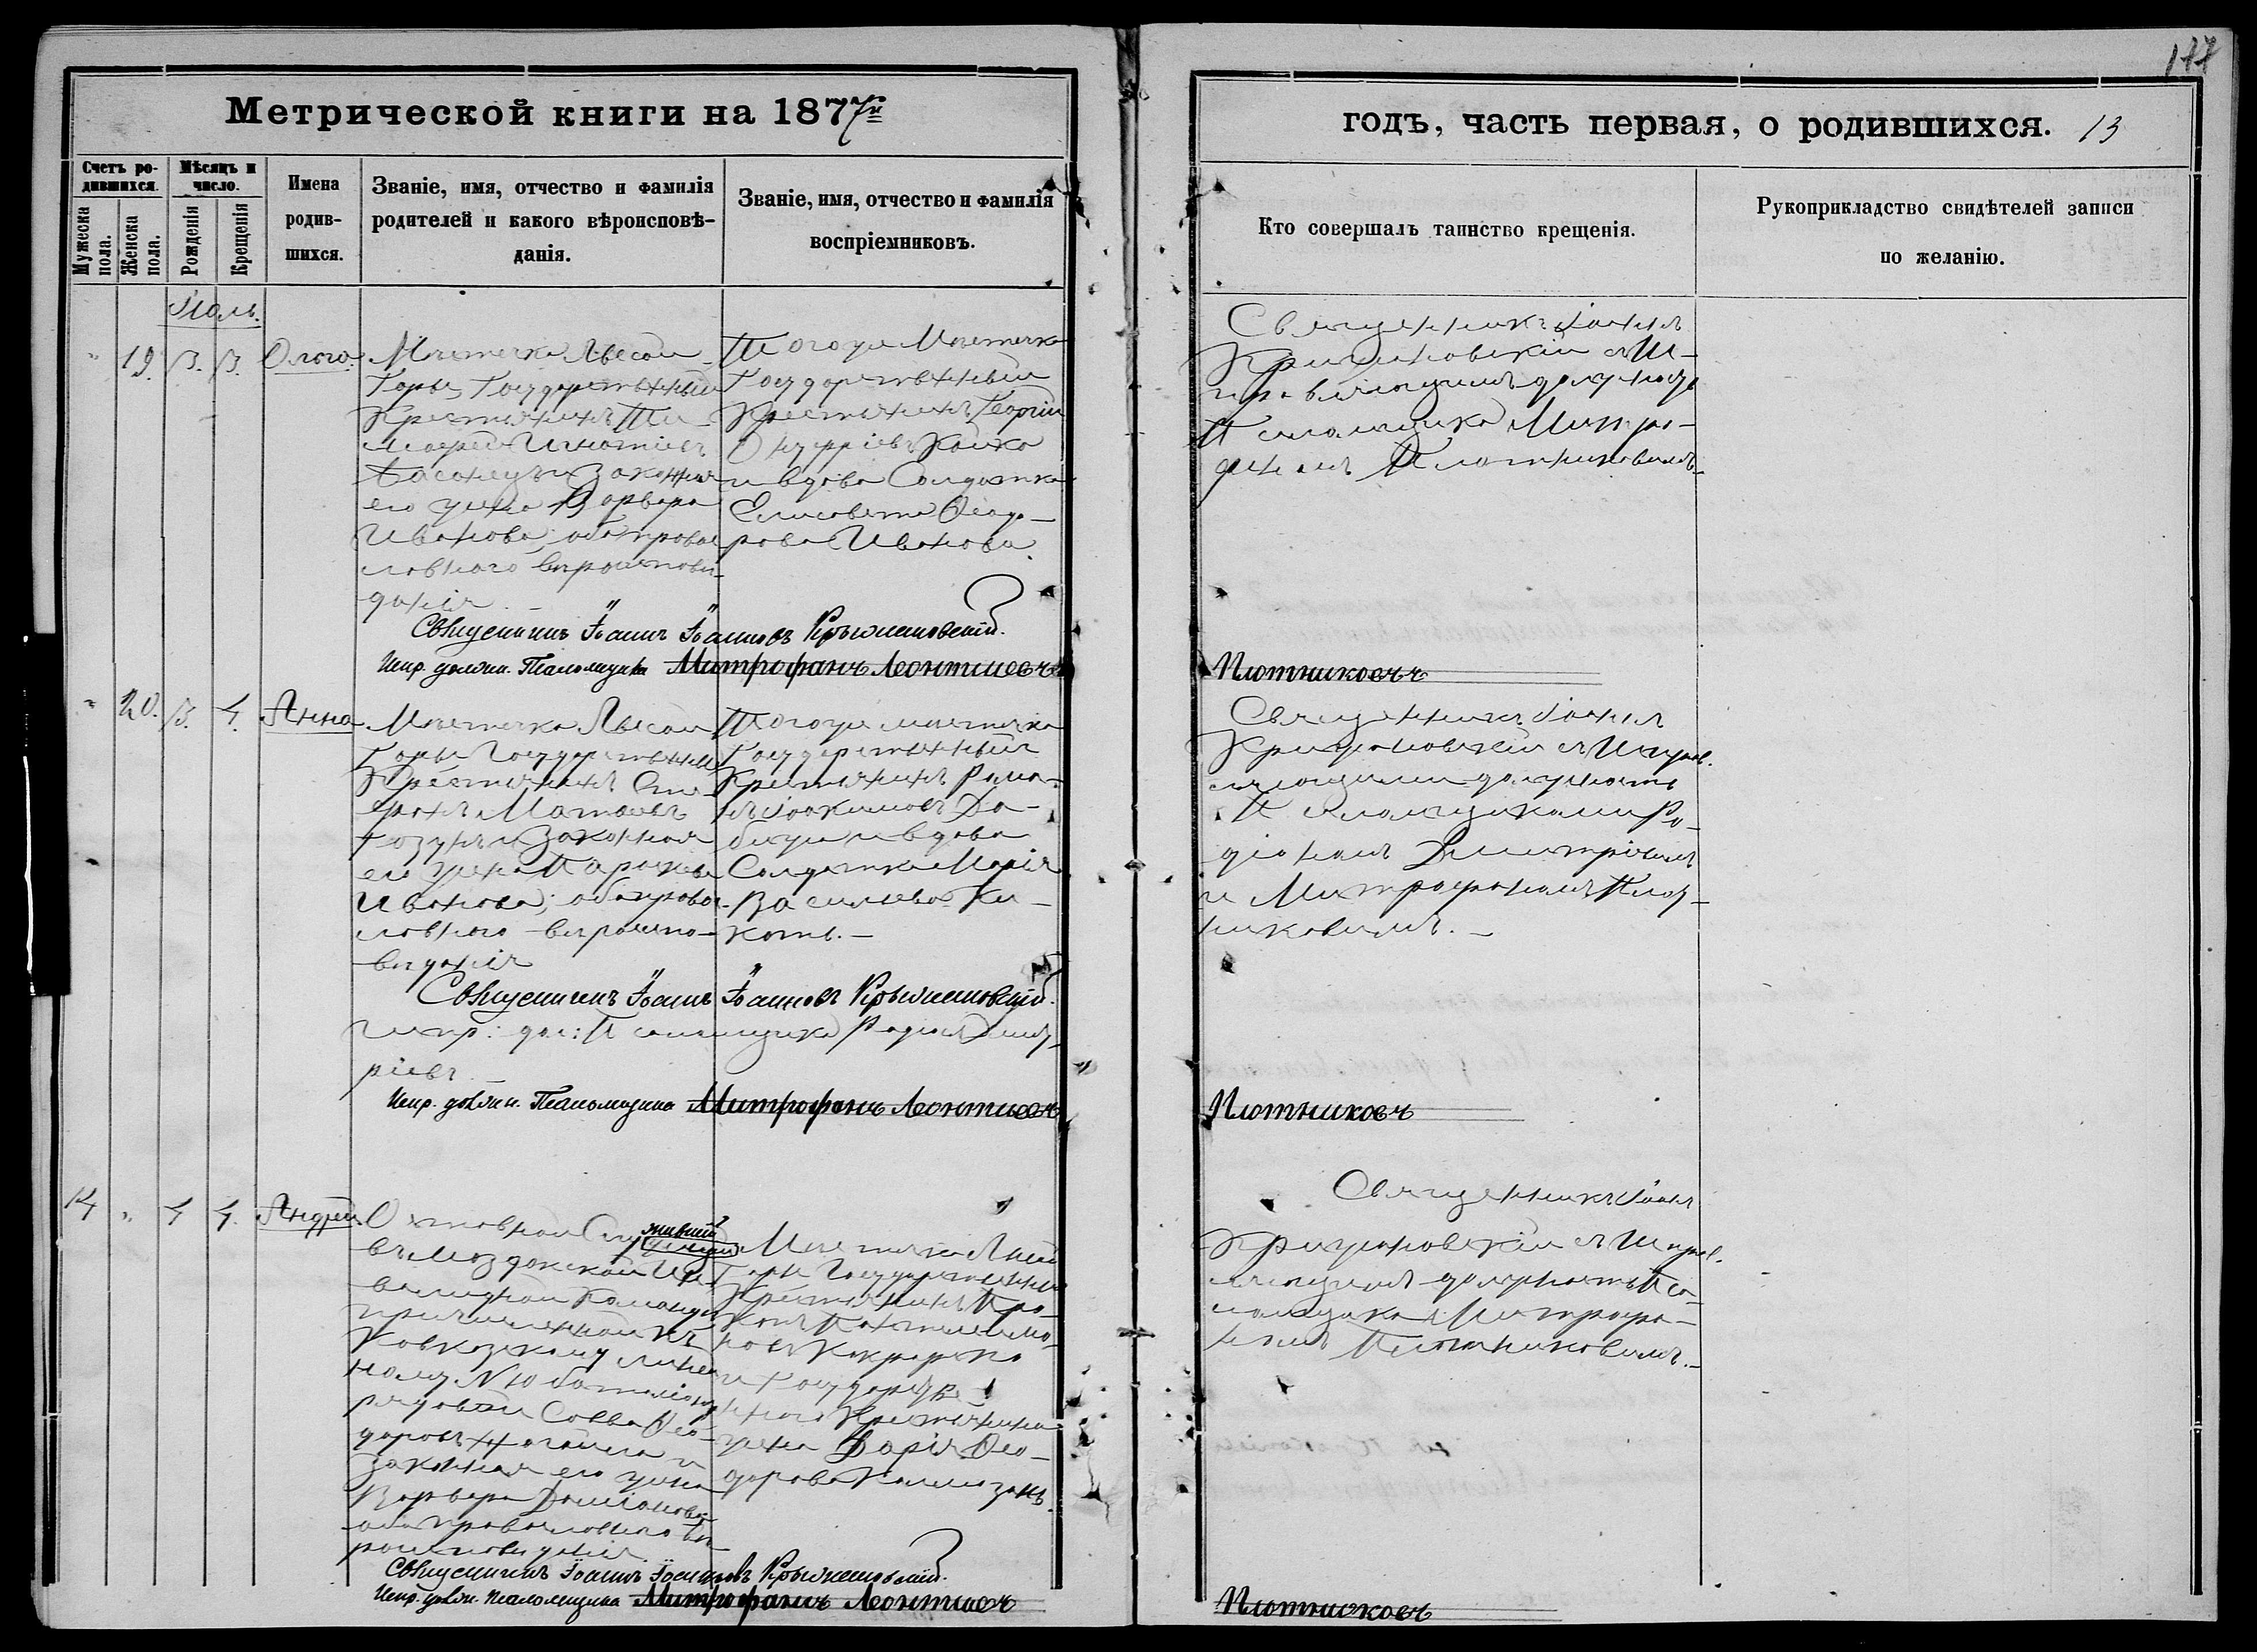 177
Метрической книги на 1877й
годъ, часть первая, о родившихся. 13
Счетъ ро-
дившихся.
Мужеска
пола.
Женска
пола.
Мѣсяцъ и
число.
Рожденія
Крещенія
Имена
родив-
шихся.
Званіе, имя, отчество и фамилія
родителей и какого вѣроисповѣ-
данія.
Званіе, имя, отчество и фамилія
воспріемниковъ.
Кто совершалъ таинство крещенія.
Рукоприкладство свидѣтелей записи
по желанію.
Іюль.
" 19. 3. 3. Ольга
Мѣстечка Лысой
Горы, Государственный
Крестьянинъ Ти-
мофей Игнатіевъ
и Законная
его жена Варвара
Иванова; оба право-
славного вѣроисповѣ-
данія. –
Тогоже Мѣстечка
Государственный
Крестьянинъ Георгій
Онуфріевъ
и вдова Солдатка
Елисавета Ѳеодо-
рова Иванова
Священникъ Іоаннъ
Крыжановскій съ И-
справляющимъ должность
Псаломщика Митро-
фаномъ Плотниковымъ
Священникъ Іоаннъ Іоанновъ Крыжановскій.
Испр. должн. Псаломщика Митрофанъ Леонтиевъ
Плотниковъ
" 20. 3. 4. Анна
Мѣстечка Лысой
Горы Государственный
Крестьянинъ
и Законная
его жена Параскева
Иванова; оба право-
славного вѣроиспо-
вѣданія
Тогоже мѣстечка
Государственный
Крестьянинъ Рома-
нъ Іоакимовъ
и вдова
Солдатка Марія
Васильева
Священникъ Іоаннъ
Крыжановскій съ Исправ-
ляющими должность
Псаломщиками Ро-
діономъ Димитріевымъ
и Митрофаномъ Плот-
никовымъ. –
Священникъ Іоаннъ Іоанновъ Крыжановскій.
испр: дол: Псаломщика Родіонъ Димит-
ріевъ. –
Испр. должн. Псаломщика Митрофанъ Леонтиевъ
Плотниковъ
14 " 4 4. Андрей
въ Моздокской Ин-
валидной Команды
причисленной къ
Кавказскому Линей-
ному № 10 баталіону
рядовой Савва Ѳео-
доровъ и
Законная его жена
Варвара Даміанова
оба православного вѣ-
роисповѣданія.
Мѣстечка Лысой
Горы Государственный
Крестьянинъ Про-
копъ Пантелеимо-
новъ
и Государстве-
нного Крестьянина
жена Дарія Ѳео-
дорова
Священникъ Іоаннъ
Крыжановскій съ Исправ-
ляющимъ должность Пса-
ломщика Митрофа-
номъ Плотниковымъ. –
Священникъ Іоаннъ Іоанновъ Крыжановскій.
Испр. должн. Псаломщика Митрофанъ Леонтиевъ
Плотниковъ